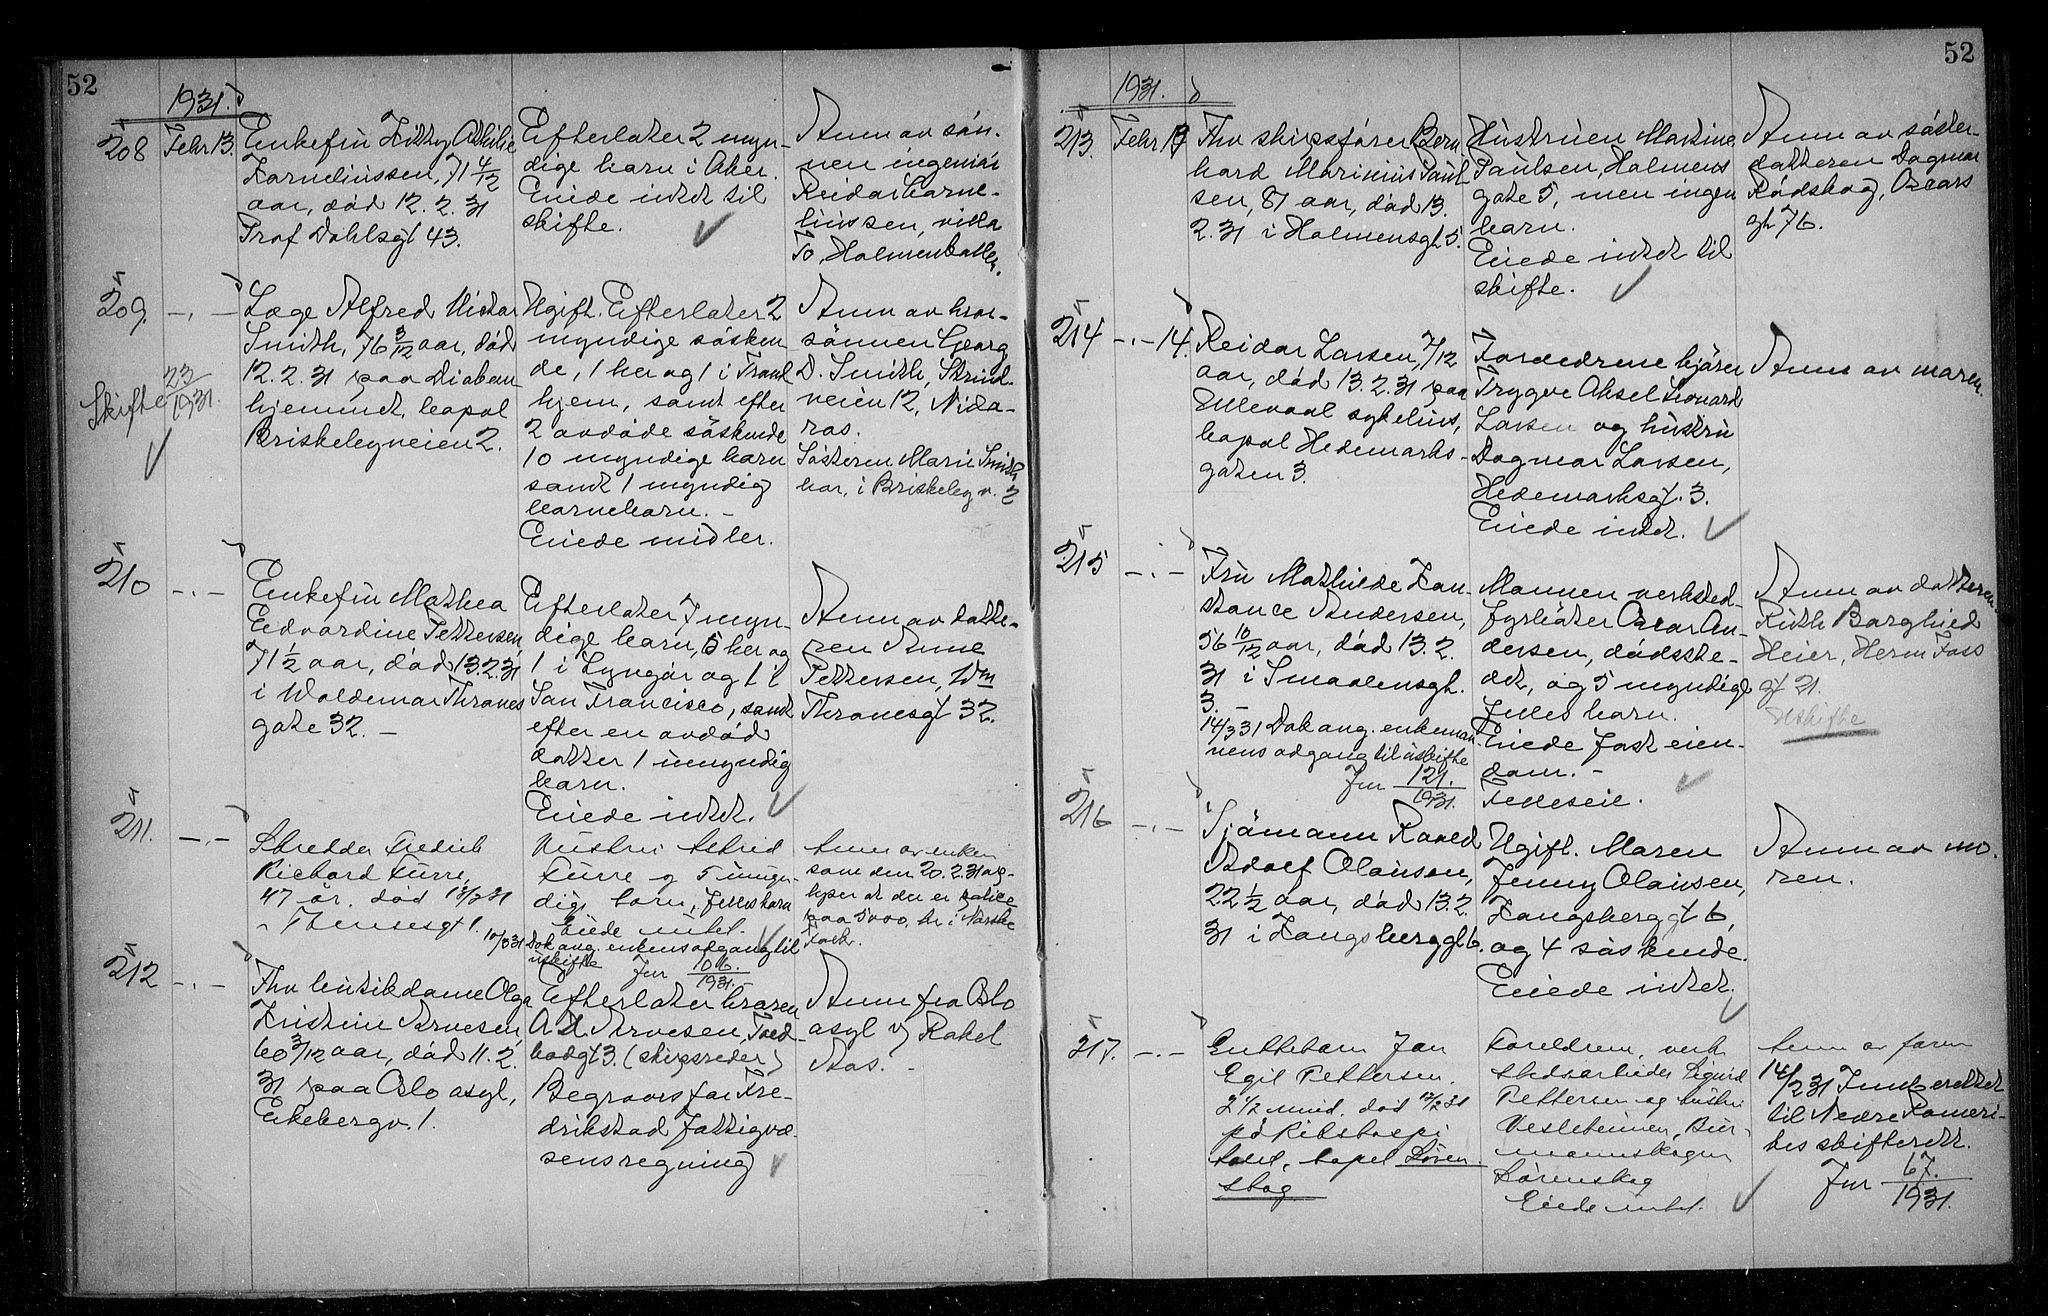 52
1931.
208
Febr 13.
Enkefru Kitty Othilie
Korneliussen, 71 4/12
aar, död 12. 2. 31
Prof Dahlsgt 43.
Efterlater 2 myn-
dige barn i Aker.
Eiede intet til
skifte.
Anm av sön-
nen ingeniör
Reidar Corne-
liussen, villa
To, Holmenkollen.
209.
-.-
Skifte 23/1931.
Læge Alfred Victor
Smith, 76 3/12 aar, död
12. 2. 31 paa Diakon-
hjemmet, kapol
Briskebyveien 2.
Ugift. Efterlater 2
myndige sösken-
de, 1 her og 1 i Trond
hjem, samt efter
2 avdöde söskende
10 myndige barn
samt 1 myndig
barnebarn. -
Eiede midler.
Anm av bror-
sönnen Georg
D. Smith, Strind-
veien 12, Nida-
ros.
Sösteren Marie Smith
bor i Briskeby v. 2
210
-.-
Enkefru Mathea
Edvardine Pettersen,
71 1/2 aar, död 13.2.31
i Waldemar Thranes
gate 32. -
Efterlater 7 myn-
dige barn, 5 her og
1 i Lyngör og 1 i
San Francisco, samt
efter en avdöd
datter 1 umyndig
barn.
Eiede intet.
Anm av datte-
ren Anne
Pettersen, Wm
Thranesgt 32.
211.
-.-
Skredder Fredrik
Richard Furre,
47 år. död 13/2 31
Themsegt 1.
Hustru Astrid
Furre og 5 umyn-
dige barn, fellesbarn
Eiede intet.
10/3 31 Dok ang. enkens adgang til
uskifte Jnr 106./1931.
Anm av enken
som den 20. 2. 31 op-
lyser at der er police
paa 5000, kr i Norske
Folk.
212
-.-
Fhv butikdame Olga
Kristine Arvesen,
60 3/12 aar, död 11. 2.
31 paa Oslo asyl,
Ekebergv. 1.
Efterlater broren
A H Arvesen, Tved-
bodgt 3. (skipsreder)
Begraves for Fre-
drikstad fattigvæ-
sens regning
Anm fra Oslo
asyl v/ Rakel
Aas. -
52
1931.
213.
Febr 13
Fhv skipsförer Bern
hard Marinius Paul
sen, 81 aar, död 13.
2. 31 i Holmensgt 5.
Hustruen Martine
Paulsen, Holmens
gate 5, men ingen
barn.
Eiede intet til
skifte.
Anm av söster-
datteren Dagmar
Rödskog, Oscars
gt 76.
214
-.- 14.
Reidar Larsen, 7/12
aar, död 13. 2. 31 paa
Ullevaal sykehus,
kapol Hedemarks-
gaten 3.
Foreldrene kjörer
Trygve Aksel Leonard
Larsen og hustru
Dagmar Larsen,
Hedemarksgt. 3.
Eiede intet.
Anm av moren.
215
-.-
Fru Mathilde Kon-
stance Andersen,
56 10/12 aar, död 13. 2.
31 i Smaalensgt.
3. -
14/3 31 Dok ang. enkeman-
nens adgang til uskifte
Jnr 121./1931.
Mannen verksted-
fyrböter Oscar An-
dersen, dödsste-
det, og 5 myndige
felles barn.
Eiede fast eien-
dom. -
Felleseie.
Anm av datteren
Ruth Borghild
Heier, Herm Foss
gt 21.
Uskifte
216
-.-
Sjömann Roald
Adolf Olausen,
22 1/2 aar, död 13. 2.
31 i Kongsberggt 6.
Ugift. Moren
Jenny Olausen,
Kongsberggt 6,
og 4 söskende.
Eiede intet.
Anm av mo-
ren.
217.
-.-
Guttebarn Jan
Egil Pettersen.
2 1/2 mnd. död 12/2 31
på Rikshospi
talet, kapel Lören
skog
Foreldrene, verk
stedsarbeider Sigurd
Pettersen og hustru
Lörenskog
Eiede intet.
Anm av faren
14/2 31 Innberettet
til Nedre Romeri-
kes skifterett.
Jnr 67./1931.